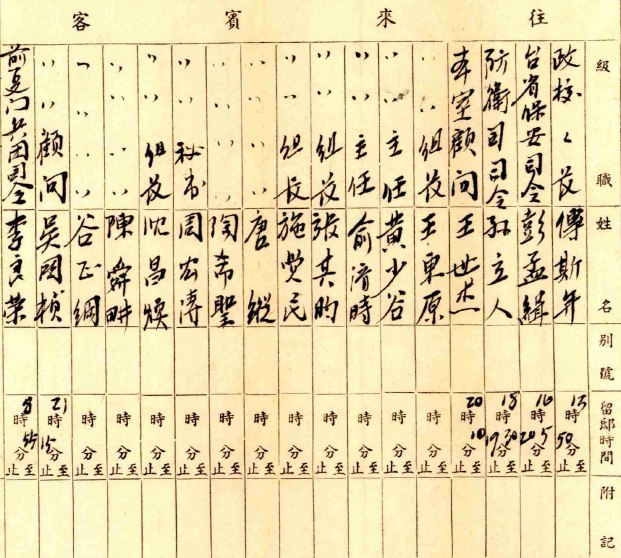 往來賓客
級職 姓名 別號 留邸時間 附記
政校々長 傅斯年 時50分至止
台省保安司令 彭孟緝 16時5分至止
防衛司司令 孫立人 18時20分至19止
本室顧問 王世杰 20時10分至止
〃 〃 組長 王東原 時分至止
〃 〃 主任 黃少谷 時分至止
〃 〃 主任 俞濟時 時分至止
〃 〃 組長 張其昀 時分至止
〃 〃 組長 施覺民 時分至止
〃 〃 〃 〃 唐縱 時分至止
〃 〃 〃 〃 陶希聖 時分至止
〃 〃 秘書 周宏濤 時分至止
〃 〃 組長 沈昌煥 時分至止
〃 〃 〃 〃 陳舜畊 時分至止
〃 〃 〃 〃 谷正綱 時分至止
〃 〃 顧問 吳國楨 21時15分至止
前厦门兵团司令 李良榮 8時55分至止